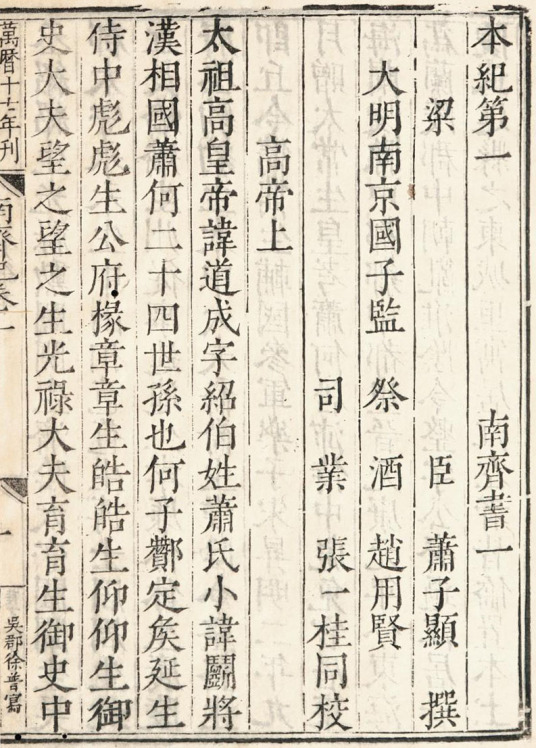 本紀第一　南齊書一
梁　臣　蕭子顯　撰
大明南京國子監　祭　酒　趙用賢
司　業　張一桂同校
高帝上
太祖高皇帝諱道成字紹伯姓蕭氏小諱鬭將
漢相國蕭何二十四世孫也何子酇定矦延生
侍中彪彪生公府椽章章生皓皓生仰仰生御
史大夫望之望之生光祿大夫育育生御史中
萬曆十七年刊　南齊紀卷一　一　吳郡徐普寫